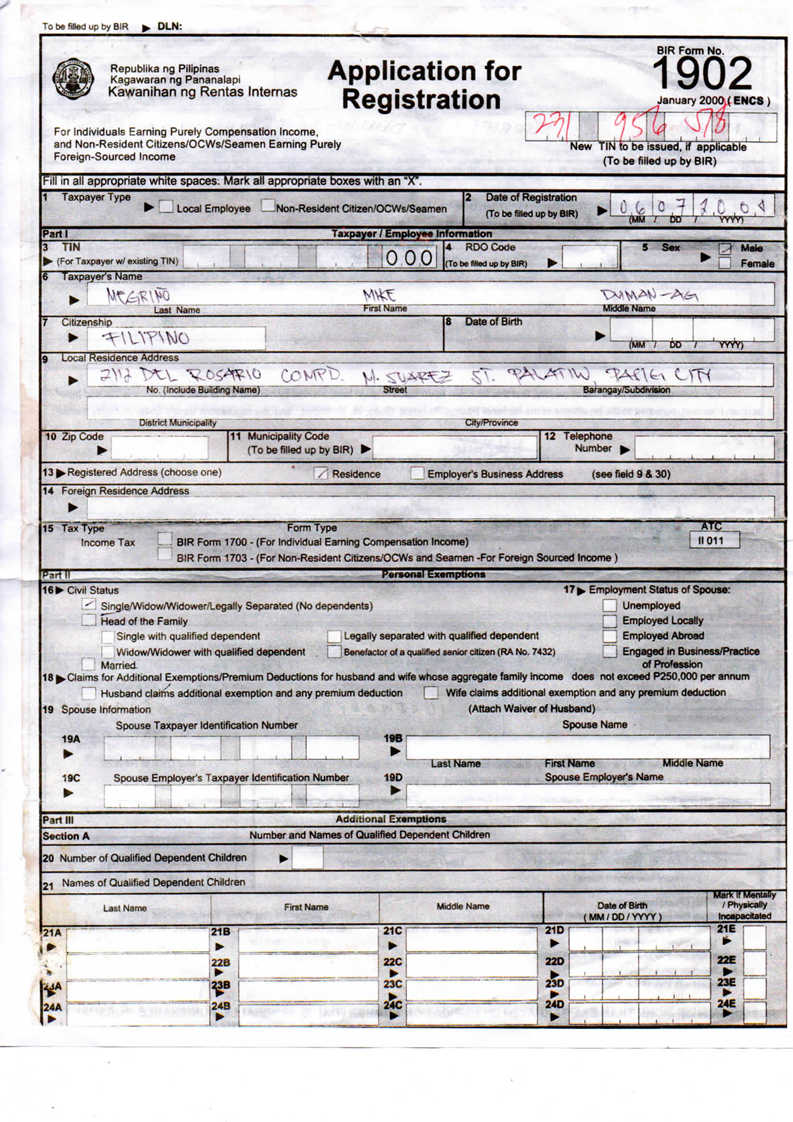 To be filled up by BIR ▶ DLN:
BIR Form No.
1902
January 2000 ( ENCS )
Republika ng Pilipinas
Kagawaran ng Pananalapi
Kawanihan ng Rentas Internas
Application for
Registration
For Individuals Earning Purely Compensation Income,
and Non-Resident Citizens/OCWs/Seamen Earning Purely
Foreign-Sourced Income
231 956 578
New TIN to be issued, if applicable
(To be filled up by BIR)
Fill in all appropriate white spaces. Mark all appropriate boxes with an "X".
1 Taxpayer Type ▶ Local Employee Non-Resident Citizen/OCWs/Seamen
2 Date of Registration
(To be filled up by BIR) ▶ 06 07 2004
(MM / DD / YYYY)
Part I Taxpayer / Employee Information
3 TIN
▶ (For Taxpayer w/ existing TIN) 000
4 RDO Code
(To be filled up by BIR) ▶
5 Sex ▶ Male
Female
6 Taxpayer's Name
▶ MEGRIÑO MIKE DUMAN-AG
Last Name First Name Middle Name
7 Citizenship
▶ FILIPINO
8 Date of Birth ▶
(MM / DD / YYYY)
9 Local Residence Address
▶ 2112 DEL ROSARIO COMPD. M. SUAREZ ST. CITY
No. (Include Building Name) Street Barangay/Subdivision
District Municipality City/Province
10 Zip Code ▶
11 Municipality Code
(To be filled up by BIR) ▶
12 Telephone
Number ▶
13 ▶ Registered Address (choose one) Residence Employer's Business Address (see field 9 & 30)
14 Foreign Residence Address
▶
15 Tax Type Form Type ATC
Income Tax BIR Form 1700 - (For Individual Earning Compensation Income) II 011
BIR Form 1703 - (For Non-Resident Citizens/OCWs and Seamen -For Foreign Sourced Income )
Part II Personal Exemptions
16 ▶ Civil Status
Single/Widow/Widower/Legally Separated (No dependents)
Head of the Family
Single with qualified dependent Legally separated with qualified dependent
Widow/Widower with qualified dependent Benefactor of a qualified senior citizen (RA No. 7432)
Married
17 ▶ Employment Status of Spouse:
Unemployed
Employed Locally
Employed Abroad
Engaged in Business/Practice
of Profession
18 ▶ Claims for Additional Exemptions/Premium Deductions for husband and wife whose aggregate family income does not exceed P250,000 per annum
Husband claims additional exemption and any premium deduction Wife claims additional exemption and any premium deduction
19 Spouse Information (Attach Waiver of Husband)
Spouse Taxpayer Identification Number Spouse Name
19A ▶ 19B ▶
Last Name First Name Middle Name
19C Spouse Employer's Taxpayer Identification Number 19D Spouse Employer's Name
▶ ▶
Part III Additional Exemptions
Section A Number and Names of Qualified Dependent Children
20 Number of Qualified Dependent Children ▶
21 Names of Qualified Dependent Children
Last Name First Name Middle Name Date of Birth
( MM / DD / YYYY )
Mark if Mentally
/ Physically
Incapacitated
21A 21B 21C 21D 21E
22B 22C 22D 22E
23A 23B 23C 23D 23E
24A 24B 24C 24D 24E